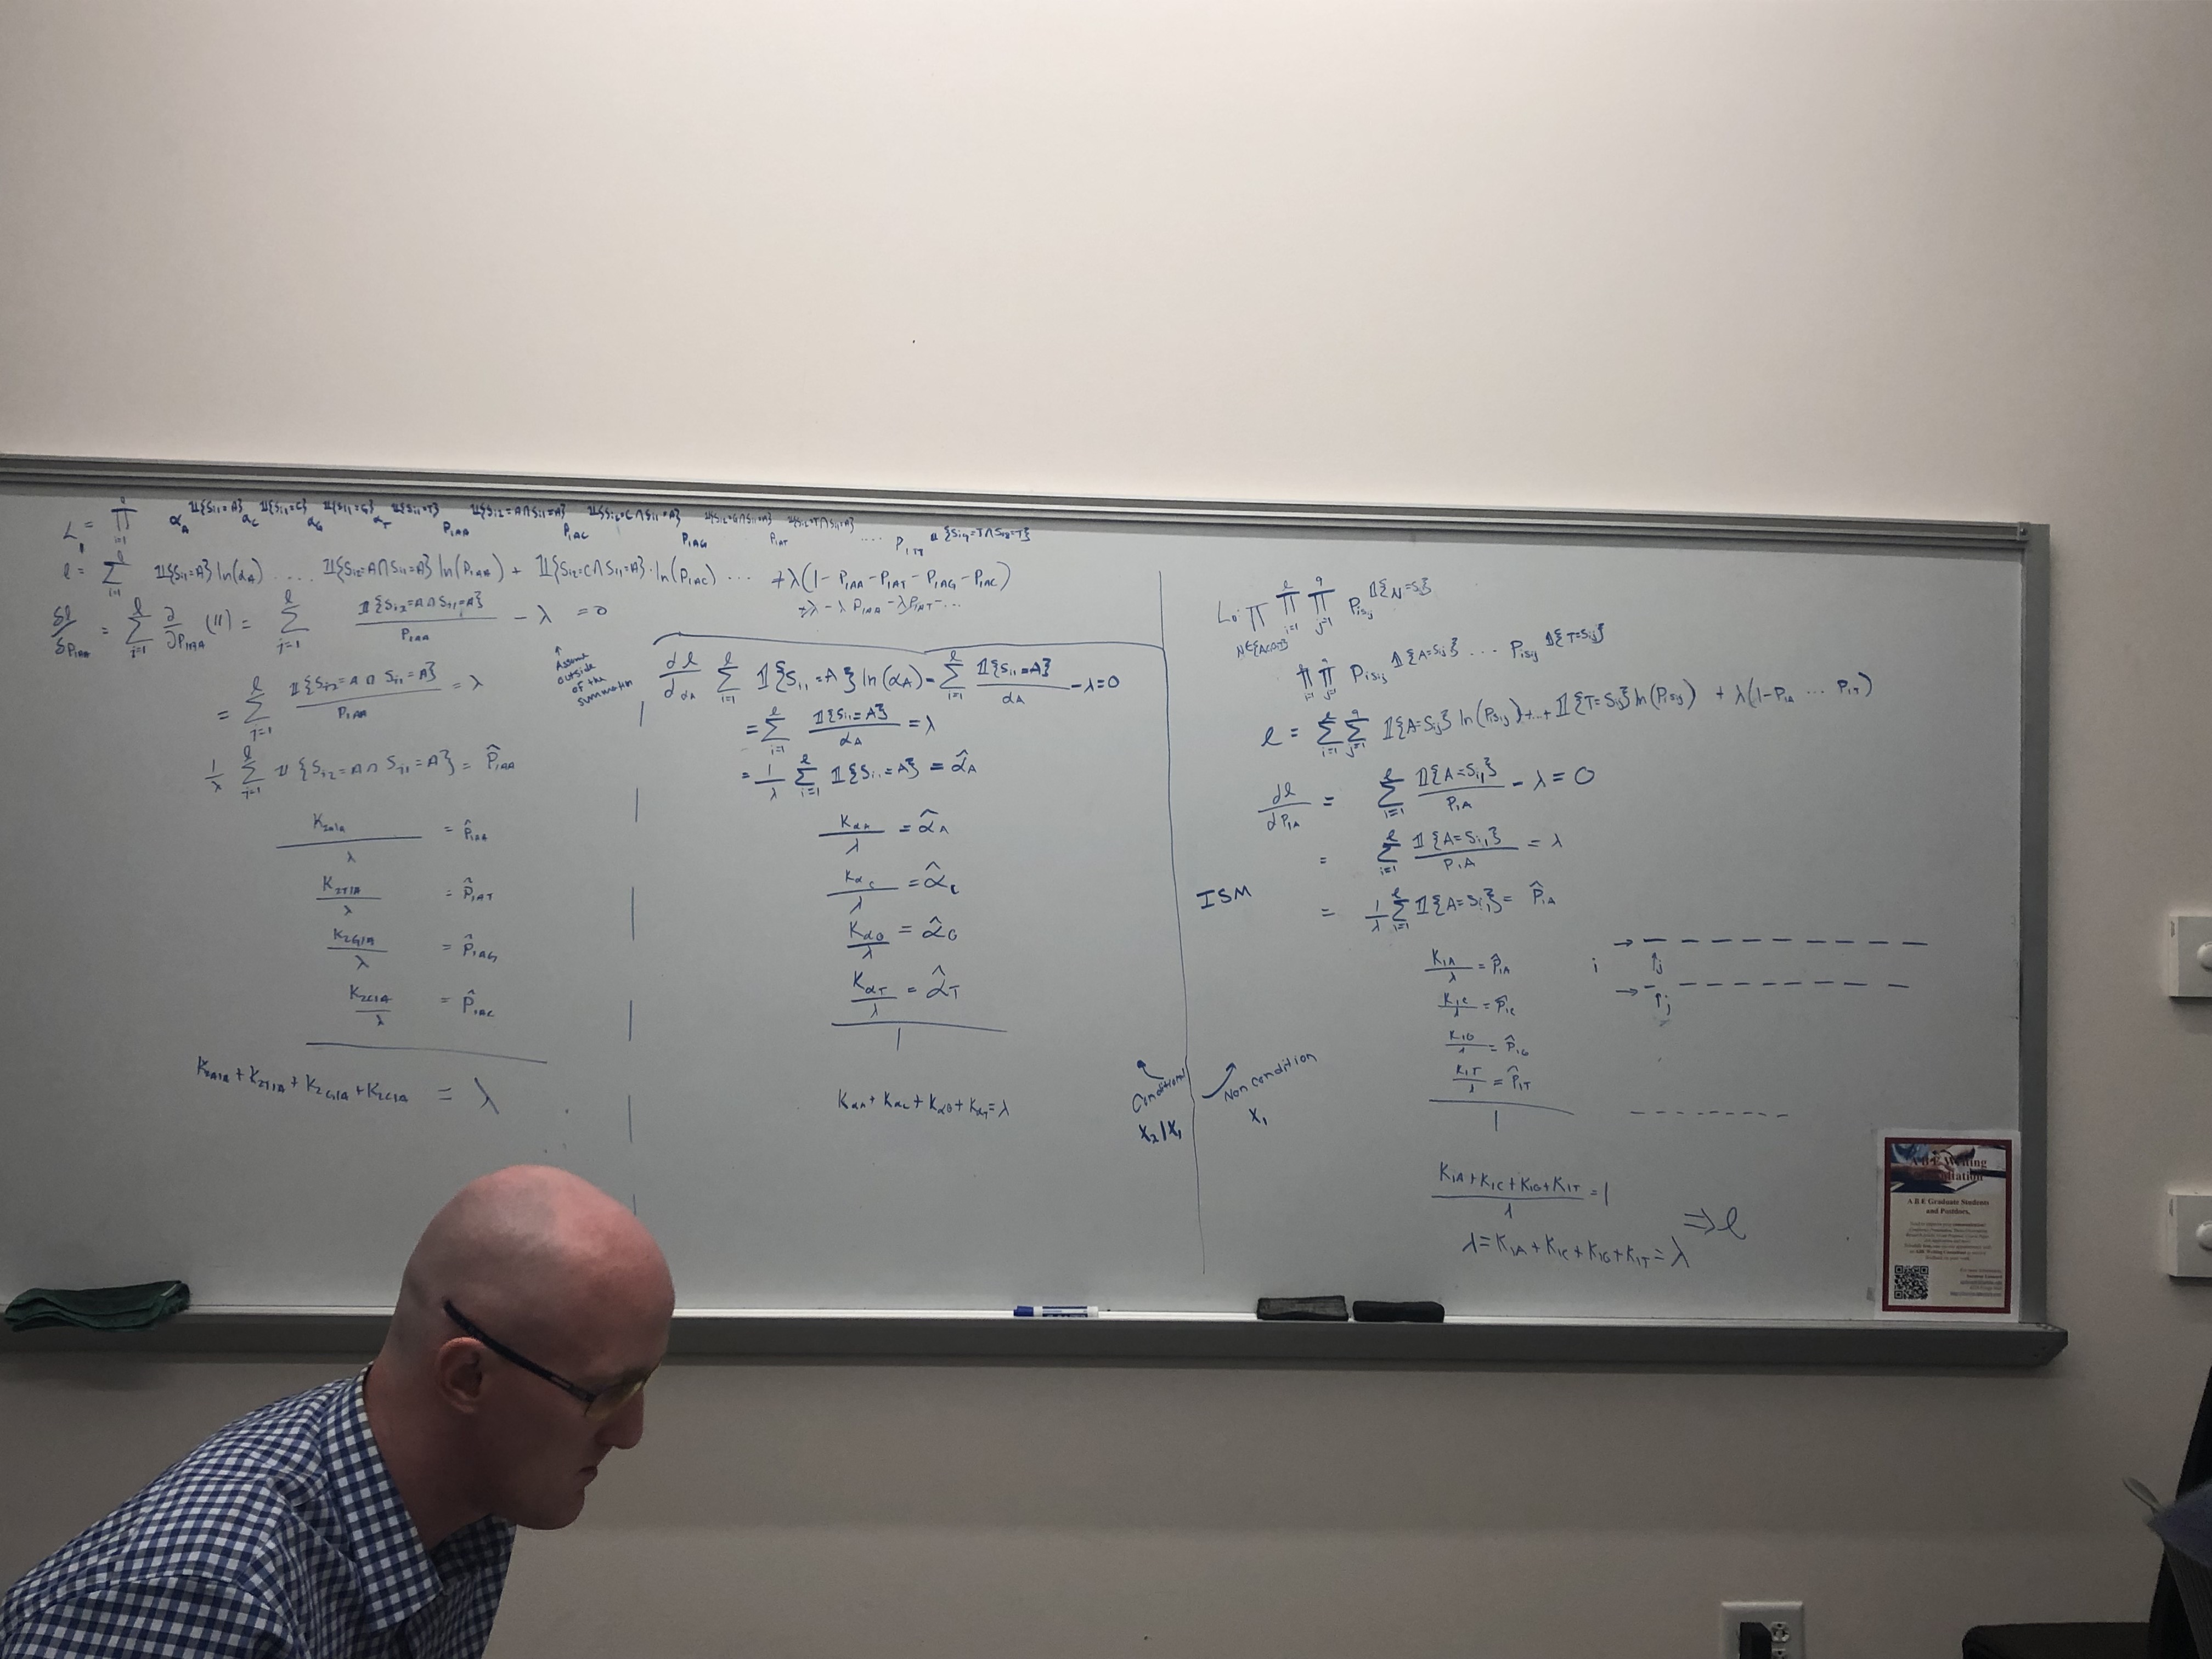 L₁ = ∏_{i=1}^{ℓ} α_A^{𝟙{S_{i1}=A}} α_C^{𝟙{S_{i1}=C}} α_G^{𝟙{S_{i1}=G}} α_T^{𝟙{S_{i1}=T}} P_{1AA}^{𝟙{S_{i2}=A∩S_{i1}=A}} P_{1AC}^{𝟙{S_{i2}=C∩S_{i1}=A}} P_{1AG}^{𝟙{S_{i2}=G∩S_{i1}=A}} P_{1AT}^{𝟙{S_{i2}=T∩S_{i1}=A}} .... P_{1TT}^{𝟙{S_{i9}=T∩S_{i8}=T}}
ℓ = ∑_{i=1}^{ℓ} 𝟙{S_{i1}=A} ln(α_A) .... 𝟙{S_{i2}=A∩S_{i1}=A} ln(P_{1AA}) + 𝟙{S_{i2}=C∩S_{i1}=A}·ln(P_{1AC}) ... +λ(1-P_{1AA}-P_{1AT}-P_{1AG}-P_{1AC})
+λ-λP_{1AA}-λP_{1AT}-...
δℓ/δP_{1AA} = ∑_{i=1}^{ℓ} ∂/∂P_{1AA} (11) = ∑_{i=1}^{ℓ} 𝟙{S_{i2}=A∩S_{i1}=A}/P_{1AA} - λ = 0
↑
Assume
outside
of the
summation
= ∑_{i=1}^{ℓ} 𝟙{S_{i2}=A∩S_{i1}=A}/P_{1AA} = λ
1/λ ∑_{i=1}^{ℓ} 𝟙{S_{i2}=A∩S_{i1}=A} = P̂_{1AA}
K_{2A1A}/λ = P̂_{1AA}
K_{2T1A}/λ = P̂_{1AT}
K_{2G1A}/λ = P̂_{1AG}
K_{2C1A}/λ = P̂_{1AC}
K_{2A1A}+K_{2T1A}+K_{2G1A}+K_{2C1A} = λ
dℓ/dα_A ∑_{i=1}^{ℓ} 𝟙{S_{i1}=A} ln(α_A) = ∑_{i=1}^{ℓ} 𝟙{S_{i1}=A}/α_A - λ = 0
= ∑_{i=1}^{ℓ} 𝟙{S_{i1}=A}/α_A = λ
= 1/λ ∑_{i=1}^{ℓ} 𝟙{S_{i1}=A} = α̂_A
K_{αA}/λ = α̂_A
K_{αC}/λ = α̂_C
K_{αG}/λ = α̂_G
K_{αT}/λ = α̂_T
1
K_{αA}+K_{αC}+K_{αG}+K_{αT}=λ
Conditional
X₂|X₁
Non condition
X₁
L₀: ∏_{N∈{A,C,G,T}} ∏_{i=1}^{ℓ} ∏_{j=1}^{9} P_{iSij}^{𝟙{N=Sij}}
∏_{i=1}^{ℓ} ∏_{j=1}^{9} P_{iSij}^{𝟙{A=Sij}} ... P_{iSij}^{𝟙{T=Sij}}
ℓ = ∑_{i=1}^{ℓ} ∑_{j=1}^{9} 𝟙{A=Sij} ln(P_{iSij})+...+𝟙{T=Sij} ln(P_{iSij}) + λ(1-P_{1A} ... P_{1T})
dℓ/dP_{1A} = ∑_{i=1}^{ℓ} 𝟙{A=S_{i1}}/P_{1A} - λ = 0
= ∑_{i=1}^{ℓ} 𝟙{A=S_{i1}}/P_{1A} = λ
ISM
= 1/λ ∑_{i=1}^{ℓ} 𝟙{A=S_{i1}} = P̂_{1A}
K_{1A}/λ = P̂_{1A}
K_{1C}/λ = P̂_{1C}
K_{1G}/λ = P̂_{1G}
K_{1T}/λ = P̂_{1T}
1
i → ↑j
→ ↑j
K_{1A}+K_{1C}+K_{1G}+K_{1T}/λ = 1
λ=K_{1A}+K_{1C}+K_{1G}+K_{1T}=λ ⇒ ℓ
ABE Writing
A B E Graduate Students
and Postdocs,